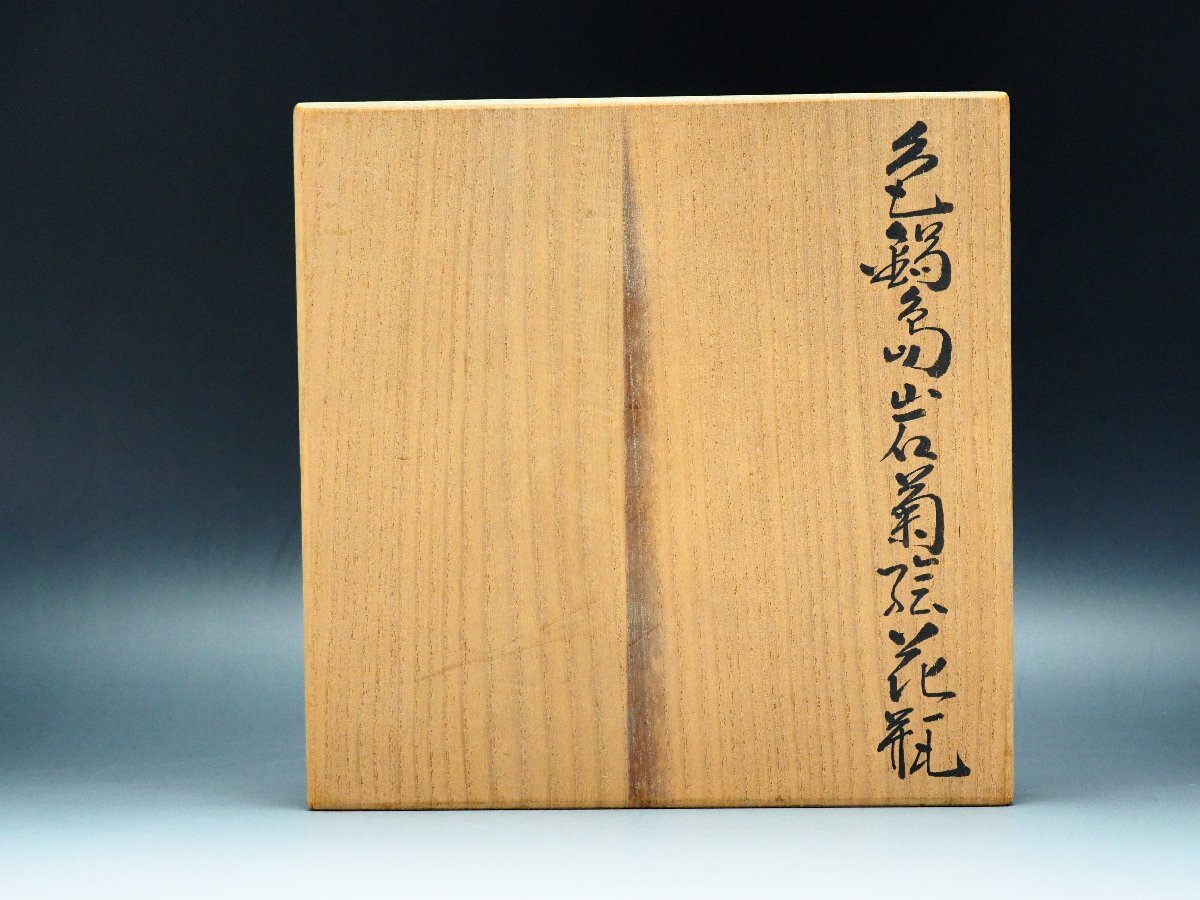 色鍋島岩菊絵花瓶